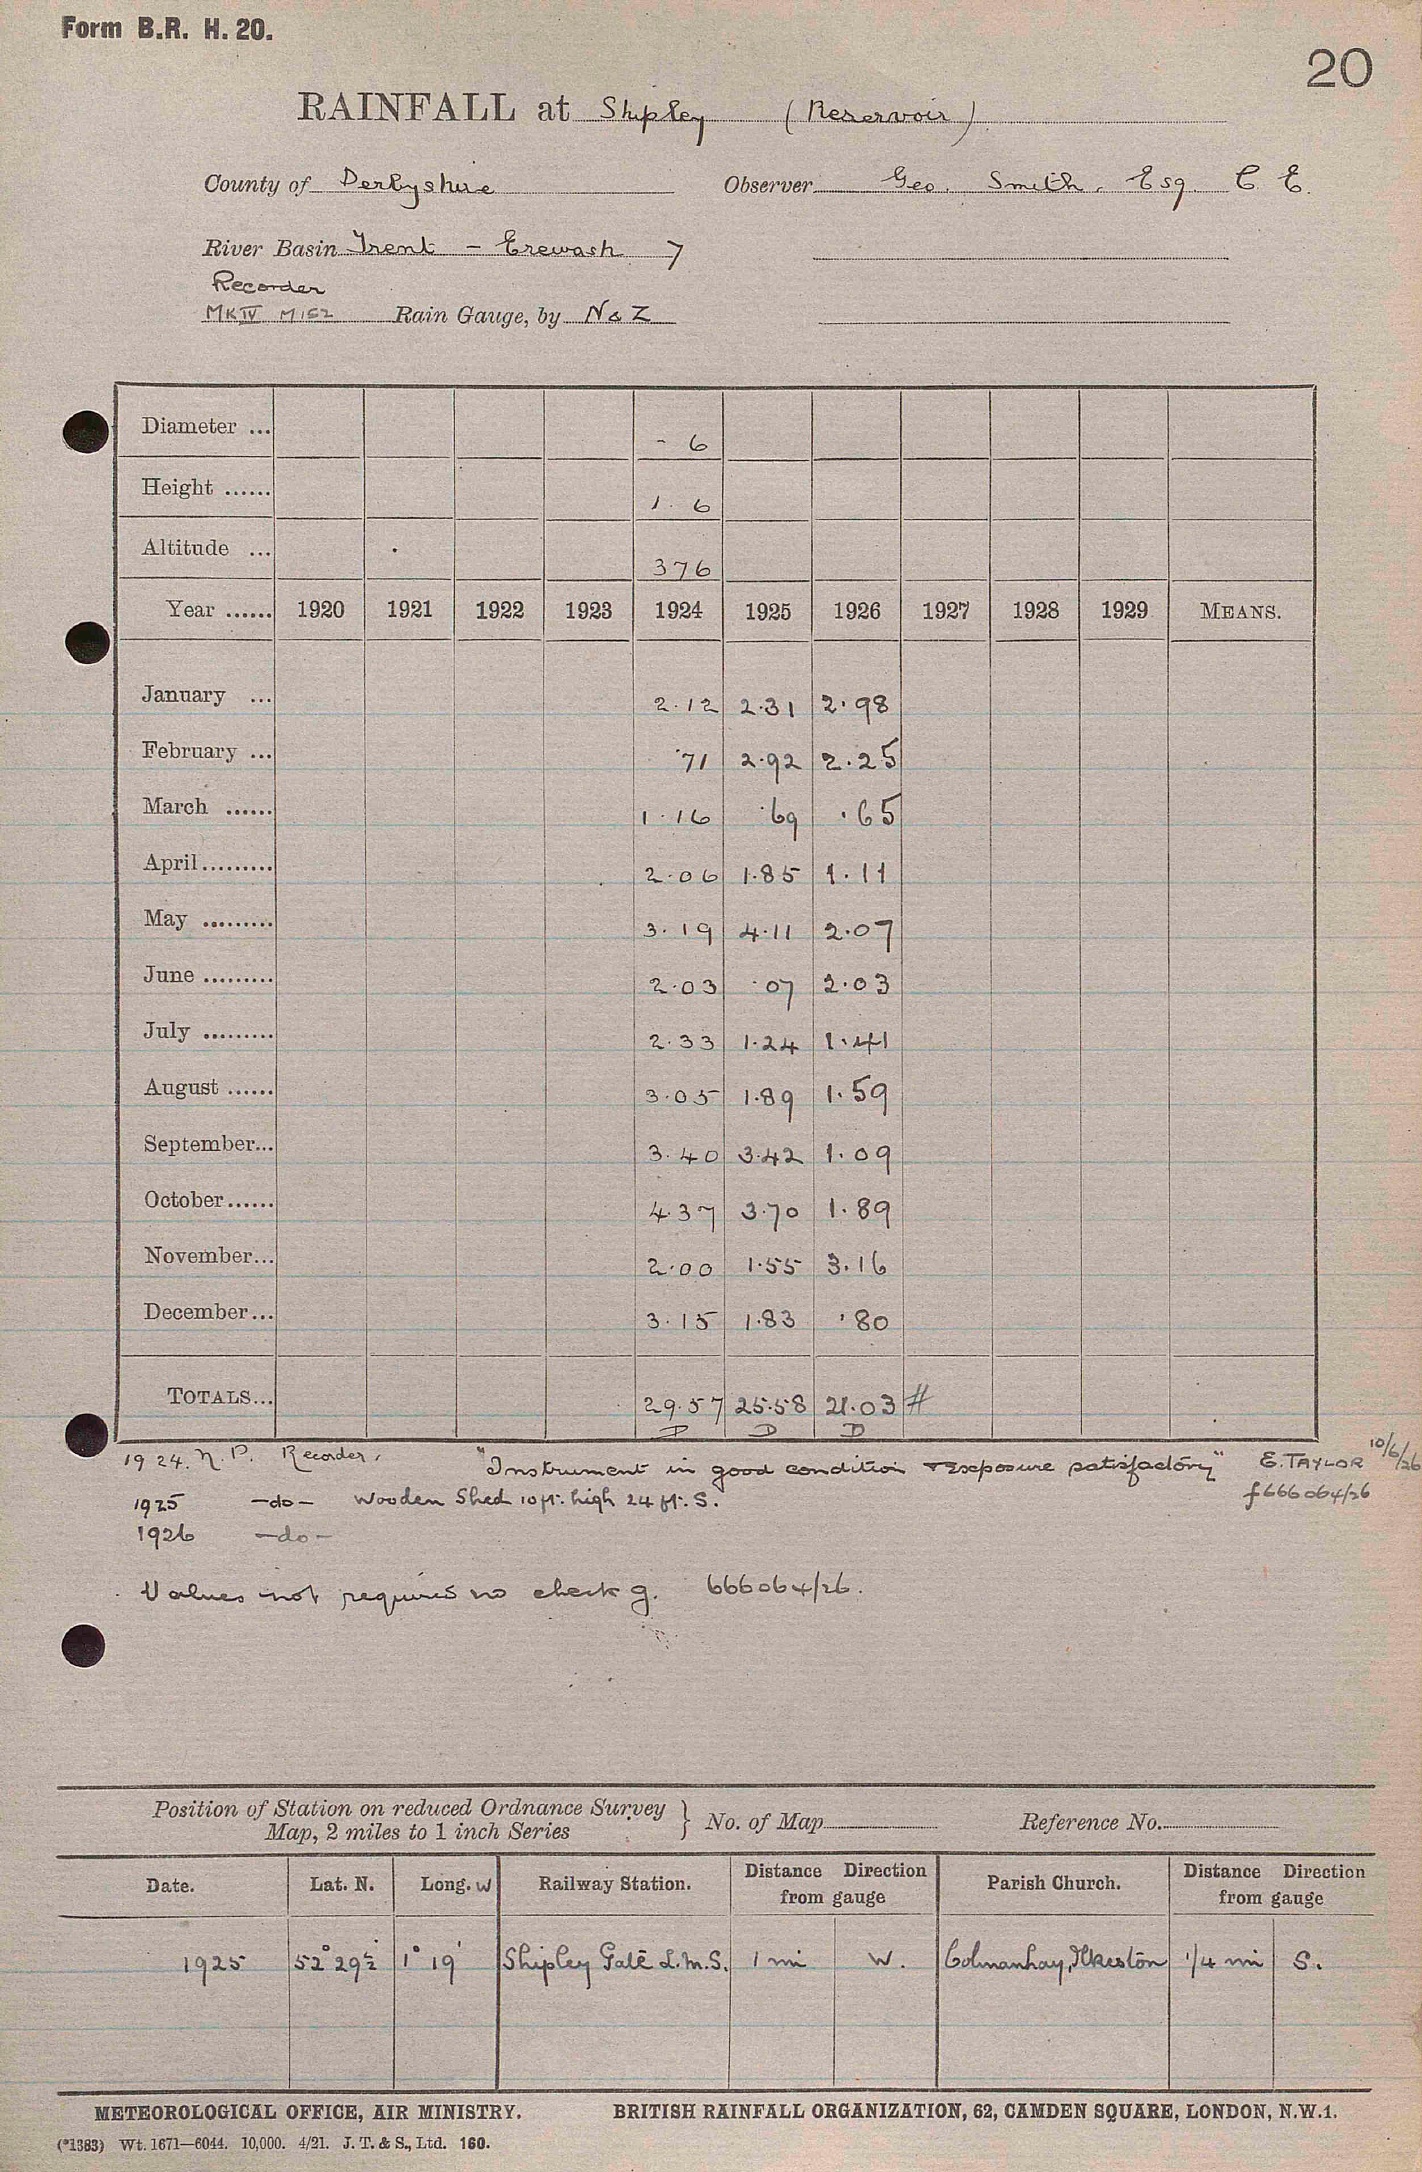 Form B.R. H. 20.
20
RAINFALL at Shipley (Reservoir)
County of Derbyshire Observer Geo. Smith, Esq. C. E.
River Basin Trent - Erewash 7
Recorder
MK IV M152 Rain Gauge, by N & Z
Diameter ... - 6
Height ...... 1. 6
Altitude ... 376
Year ...... 1920 1921 1922 1923 1924 1925 1926 1927 1928 1929 MEANS.
January ... 2.12 2.31 2.98
February ... .71 2.92 2.25
March ...... 1.16 .69 .65
April......... 2.06 1.85 1.11
May ......... 3.19 4.11 2.07
June ......... 2.03 .07 2.03
July ......... 2.33 1.24 1.41
August ...... 3.05 1.89 1.59
September... 3.40 3.42 1.09
October...... 4.37 3.70 1.89
November... 2.00 1.55 3.16
December... 3.15 1.83 .80
TOTALS... 29.57 25.58 21.03 #
D D D
1924. N. P. Recorder. "Instrument in good condition + exposure satisfactory" E. TAYLOR 10/6/26
1925 -do- Wooden Shed 10 ft. high 24 ft. S. f 666064/26
1926 -do-
Values not required no check g. 666064/26.
Position of Station on reduced Ordnance Survey Map, 2 miles to 1 inch Series } No. of Map Reference No.
Date. Lat. N. Long. W Railway Station. Distance Direction from gauge Parish Church. Distance Direction from gauge
1925 52° 29½' 1° 19' Shipley Gate L.M.S. 1 mi W. Cotmanhay, Ilkeston 1/4 mi S.
METEOROLOGICAL OFFICE, AIR MINISTRY. BRITISH RAINFALL ORGANIZATION, 62, CAMDEN SQUARE, LONDON, N.W.1.
(*1383) Wt. 1671—6044. 10,000. 4/21. J. T. & S., Ltd. 160.